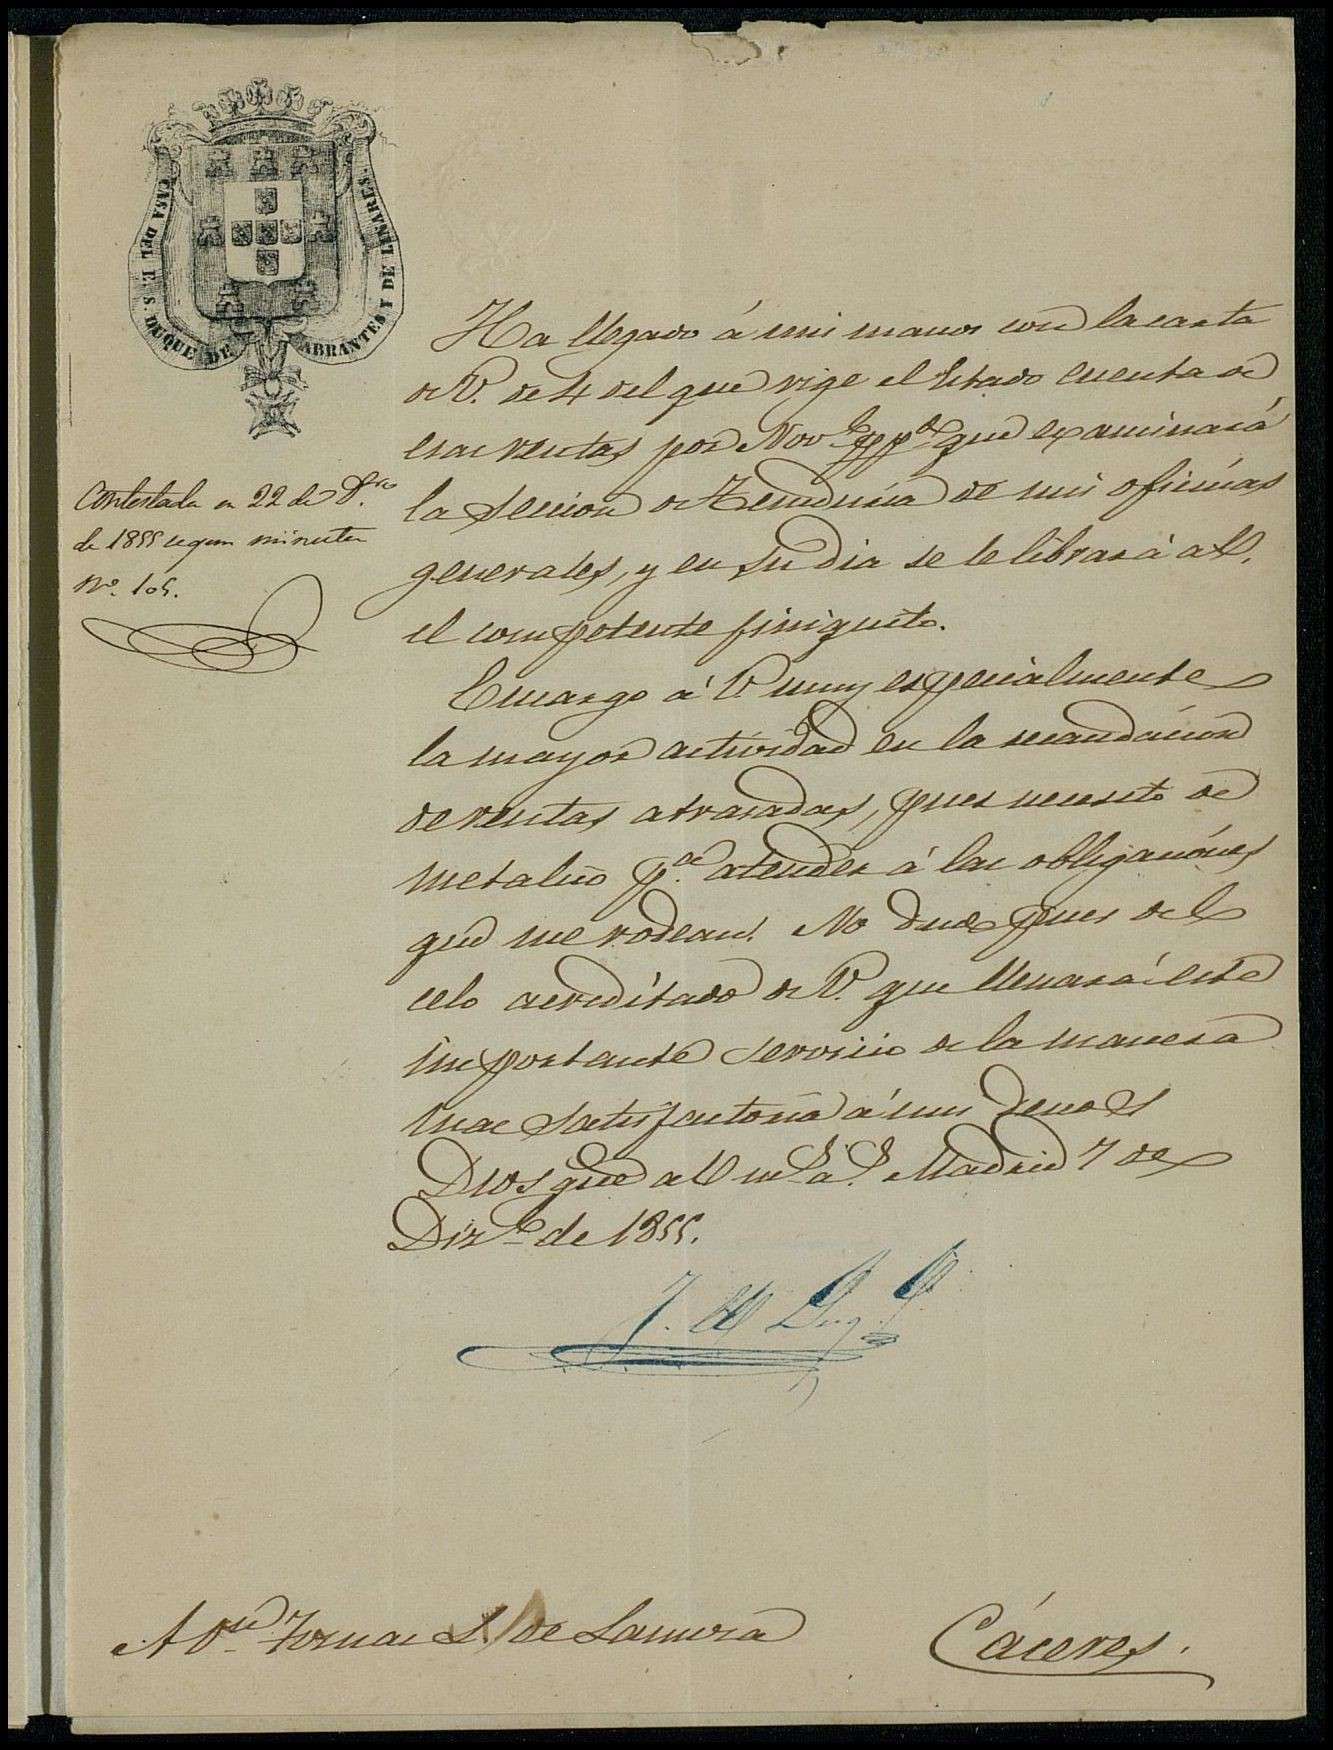 CASA DEL E. S. DUQUE DE ABRANTES Y DE LINARES.
Contestada en 22 de D.re
de 1855 segun minuta
N.º 105.
Ha llegado á mis manos con la carta
de V. de 4 del que rige el Estado cuenta de
esas rentas por Nov.e pp.do que examinará
la Seccion de Teneduria de mis oficinas
generales, y en su dia se le librará a V.
el competente finiquito.
Encargo á V muy especialmente
la mayor actividad en la recaudacion
de rentas atrasadas, pues necesito de
metalico p.a atender á las obligaciones
que me rodean. No dude pues del
celo acreditado de V. que llenará este
importante servicio de la manera
mas satisfactoria á mis deseos
Dios gue a V m.s a.s Madrid 7 de
Diz.e de 1855.
A D.n Tomas S. de Lamora
Cáceres.